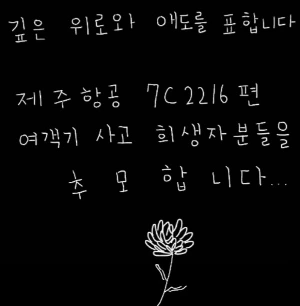 깊은 위로와 애도를 표합니다
제주항공 7C2216편
여객기 사고 희생자분들을
추모합니다...